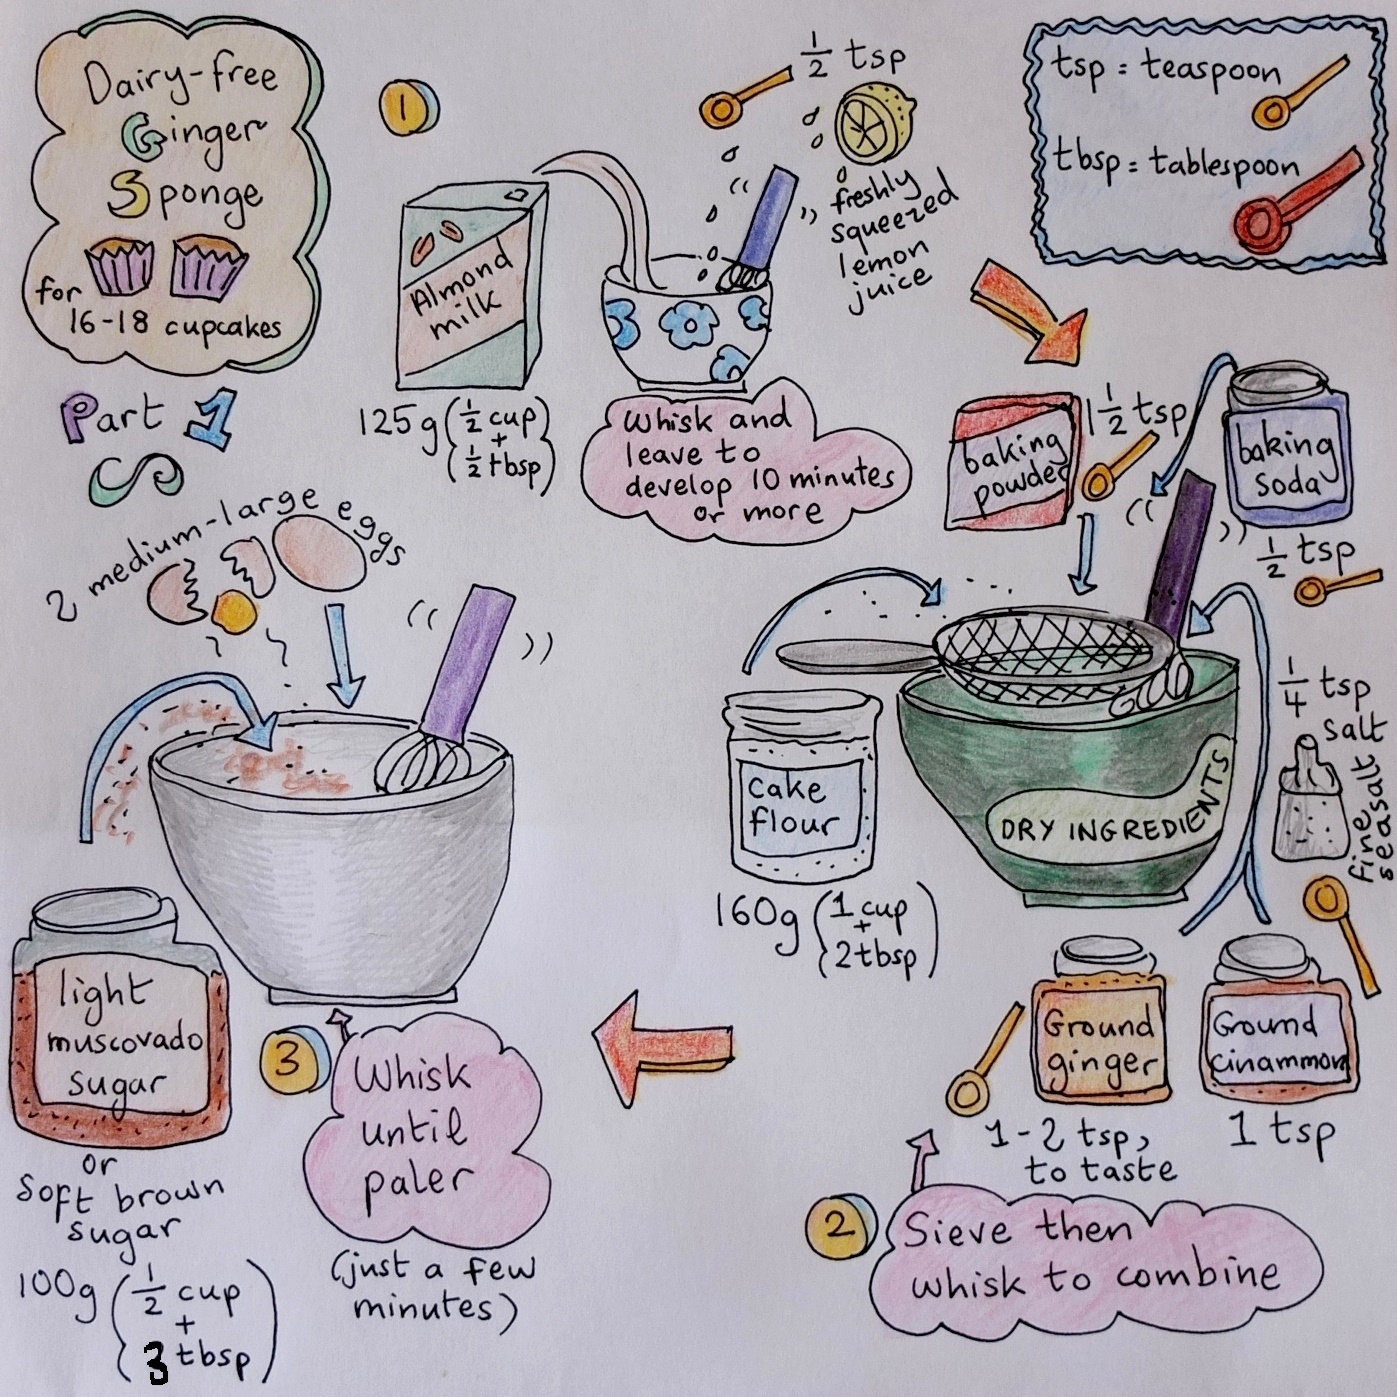 Dairy-free
Ginger
Sponge
for
16-18 cupcakes
Part 1
1
1/2 tsp
freshly
squeezed
lemon
juice
Almond
milk
125g (1/2 cup
+
1/2 tbsp)
Whisk and
leave to
develop 10 minutes
or more
tsp = teaspoon
tbsp = tablespoon
baking
powder
1 1/2 tsp
baking
soda
1/2 tsp
1/4 tsp
salt
fine
seasalt
cake
flour
160g (1 cup
+
2 tbsp)
DRY INGREDIENTS
Ground
ginger
1-2 tsp,
to taste
Ground
cinammon
1 tsp
2
Sieve then
whisk to combine
2 medium-large eggs
light
muscovado
sugar
or
soft brown
sugar
100g (1/2 cup
+
3 tbsp)
3
Whisk
until
paler
(just a few
minutes)